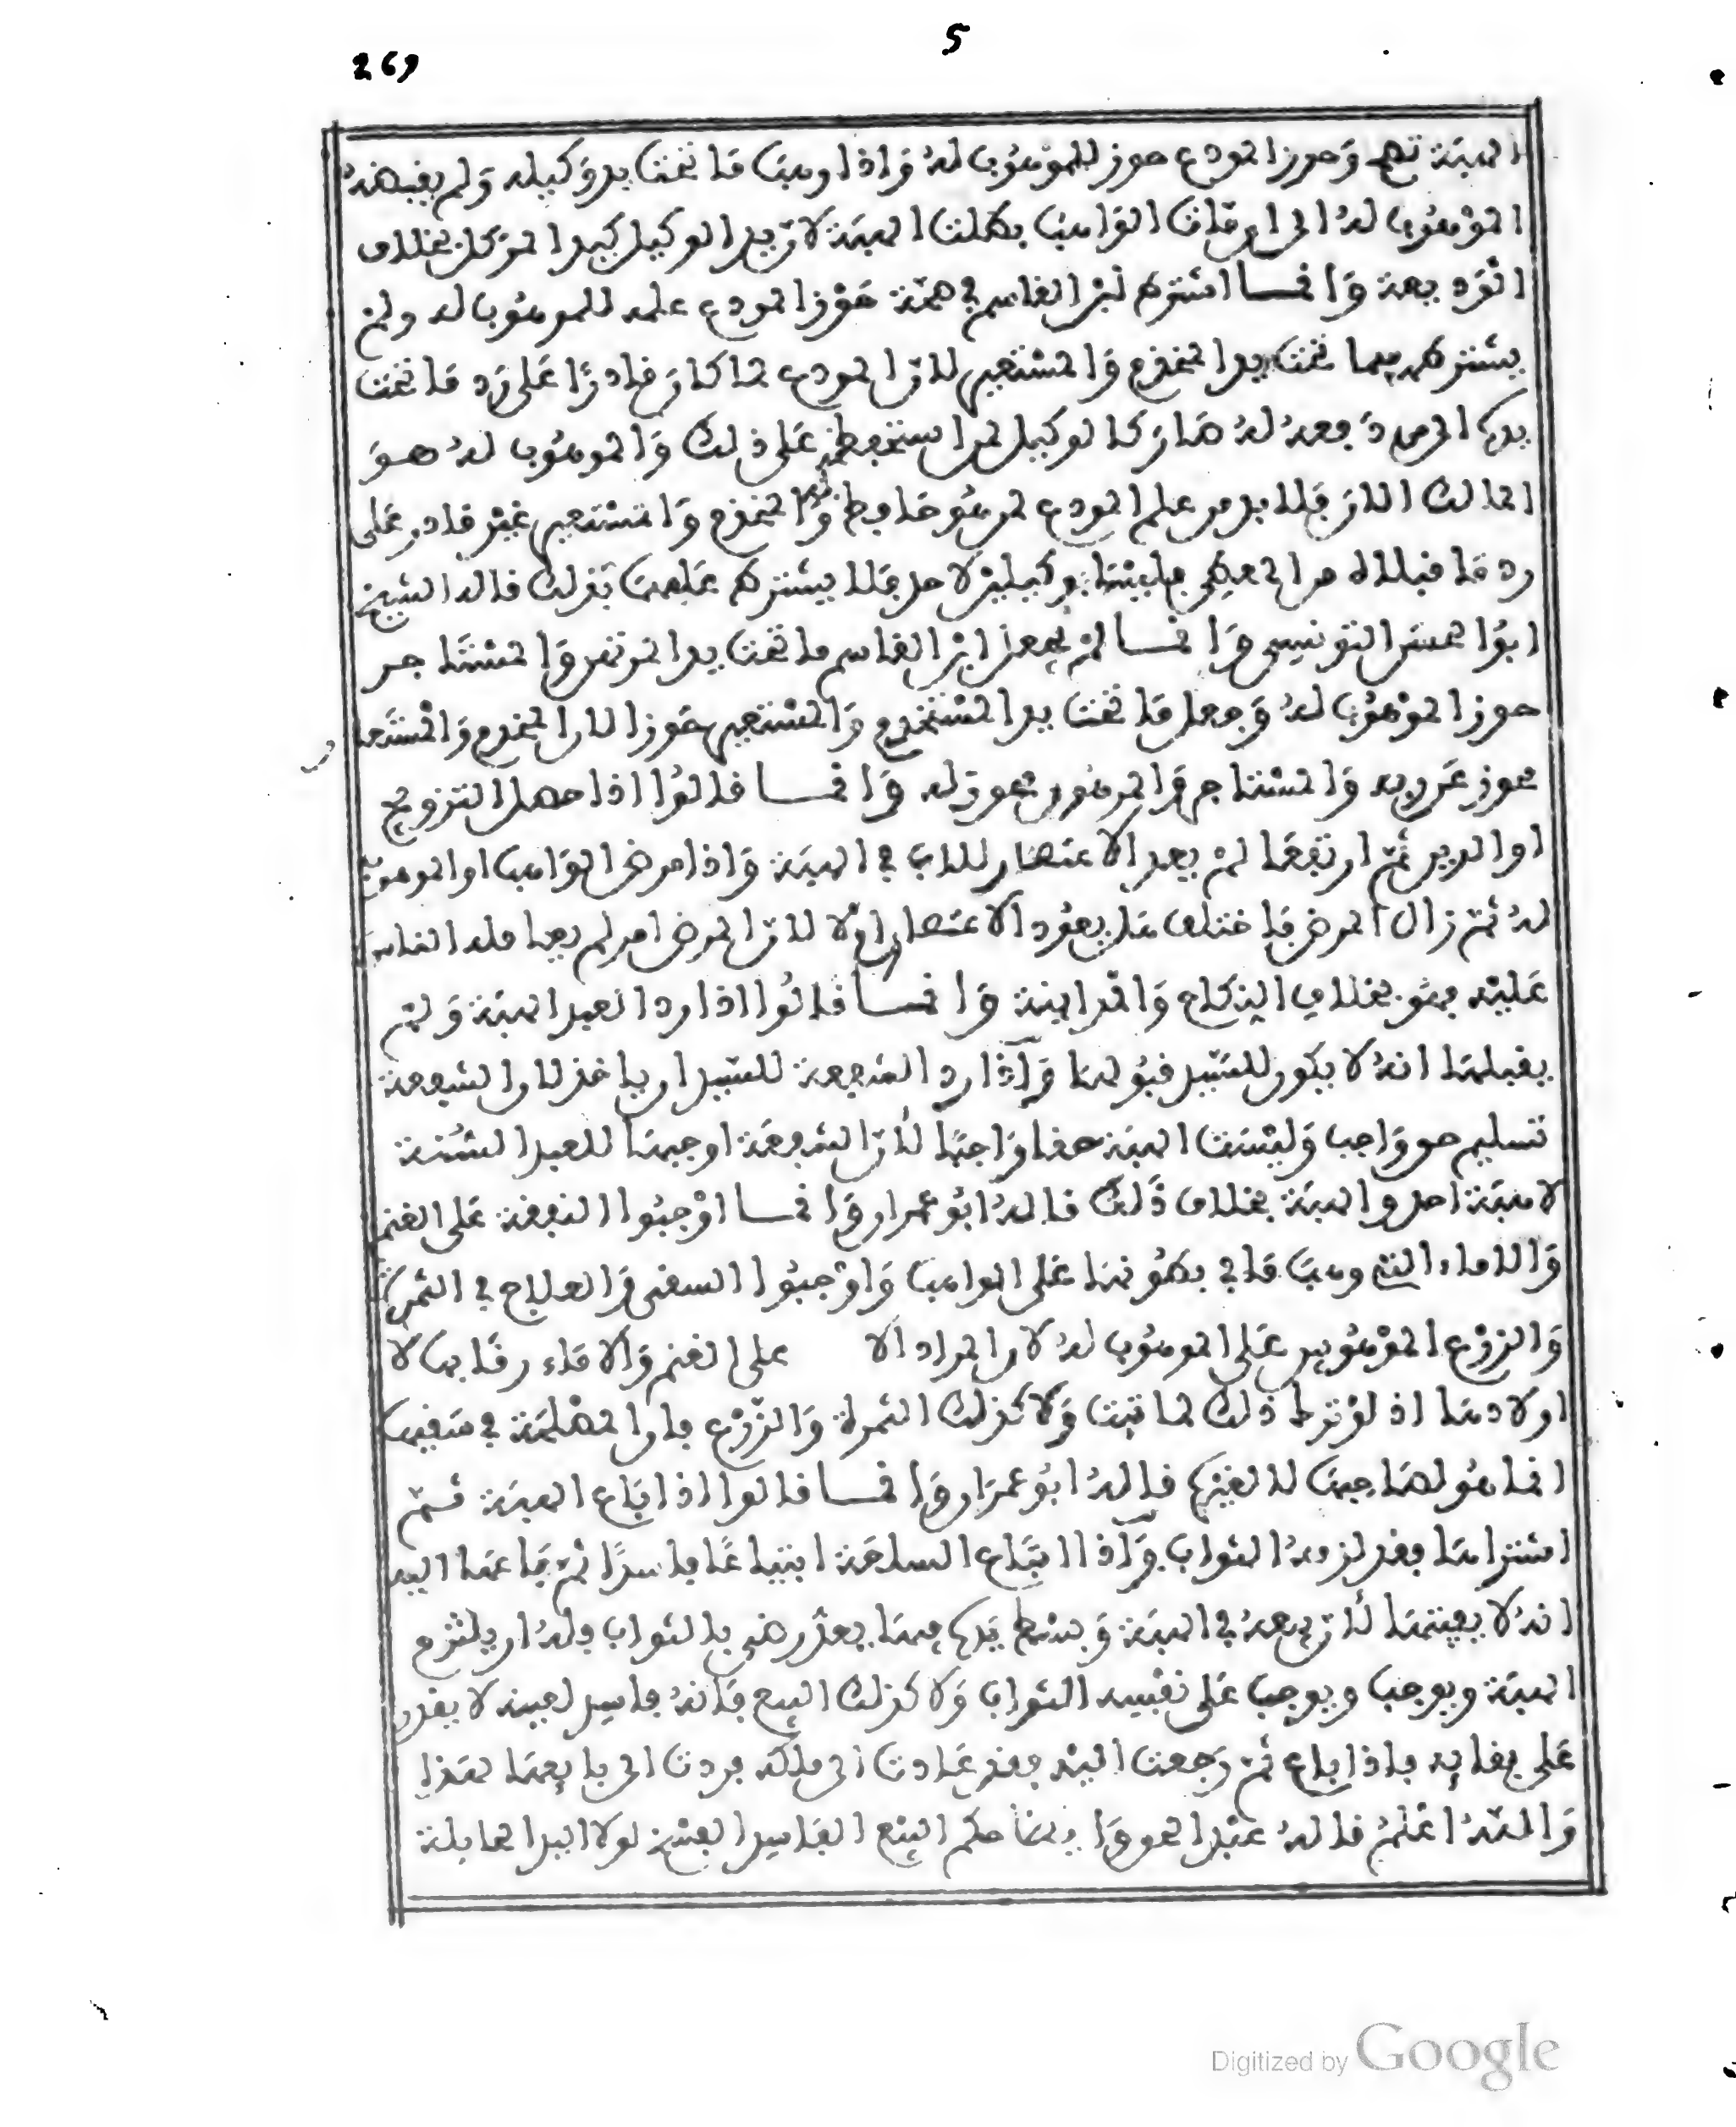 5
269
الهبة تصح وحوز المودع حوز للموهوب له واذا وهب ما تحت يد وكيله ولم يقبضه
الموهوب له الى ان مات الواهب بطلت الهبة لان يد الوكيل كيد الموكل بخلاف
الوديعة وانما اشترط ابن القاسم في صحة حوز المودع علمه للموهوب له ولم
يشترطه فيما تحت يد المخدم والمستعير لان المودع لما كان قادرا على رد ما تحت
يده الى من دفعه له صار كالوكيل لمن استحفظه على ذلك والموهوب له هو
المالك الان فلا بد من علم المودع لمن هو حافظ والمخدم والمستعير غير قادر على
رد ما قبلاه من المعطي فليسا بوكيلين لاحد فلا يشترط علمهما بذلك قاله الشيخ
ابو الحسن التونسي وانما لم يجعل ابن القاسم ما تحت يد المرتهن والمستاجر
حوز الموهوب له وجعل ما تحت يد المستخدم والمستعير حوزا لان المخدم والمستعير
يحوز عن ربه والمستاجر والمرتهن يحوز له وانما قالوا اذا حصل التزويج
او الدين ثم ارتفعا لم يعد الاعتصار للاب في الهبة واذا مرض الواهب او الموهوب
له ثم زال المرض فاختلف هل يعود الاعتصار ام لا لان المرض امر لم يعامله الناس
عليه فهو بخلاف النكاح والمداينة وانما قالوا اذا رد العبد الهبة ولم
يقبلها انه لا يكون للسيد قبولها واذا رد الشفعة للسيد ان ياخذ لان الشفعة
تسليم حق واجب وليست الهبة حقا واجبا لان الشفعة اوجبها للعبد السنة
لا هبة احد والهبة بخلاف ذلك قاله ابو عمران وانما اوجبوا النفقة على الغنم
والاماء التي وهب ما في بطونها على الواهب واوجبوا السقي والعلاج في الثمرة
والزرع الموهوبين على الموهوب له لان المراد الا على الغنم والاماء رقابها لا
اولادها اذ لو ترك ذلك لماتت ولا كذلك الثمرة والزرع فان المصلحة في سقيها
انما هو لصاحبها لا لغيره قاله ابو عمران وانما قالوا اذا باع الهبة ثم
اشتراها فقد لزمه الثواب واذا ابتاع السلعة ابتياعا فاسدا ثم باعها اليه
انه لا يفيتها لان بيعه في الهبة وبسط يده فيها يعد رضى بالثواب وله ان يلتزم
الهبة ويوجب ويوجب على نفسه الثواب ولا كذلك البيع فانه فاسد لعينه لا يقدر
على بقايه فاذا باع ثم رجعت اليه فقد عادت الى ملكه فردت الى بايعها لهذا
والله اعلم قاله عبد الحق وايضا حكم البيع الفاسد الفسخ لولا اليد الحايلة
Digitized by Google